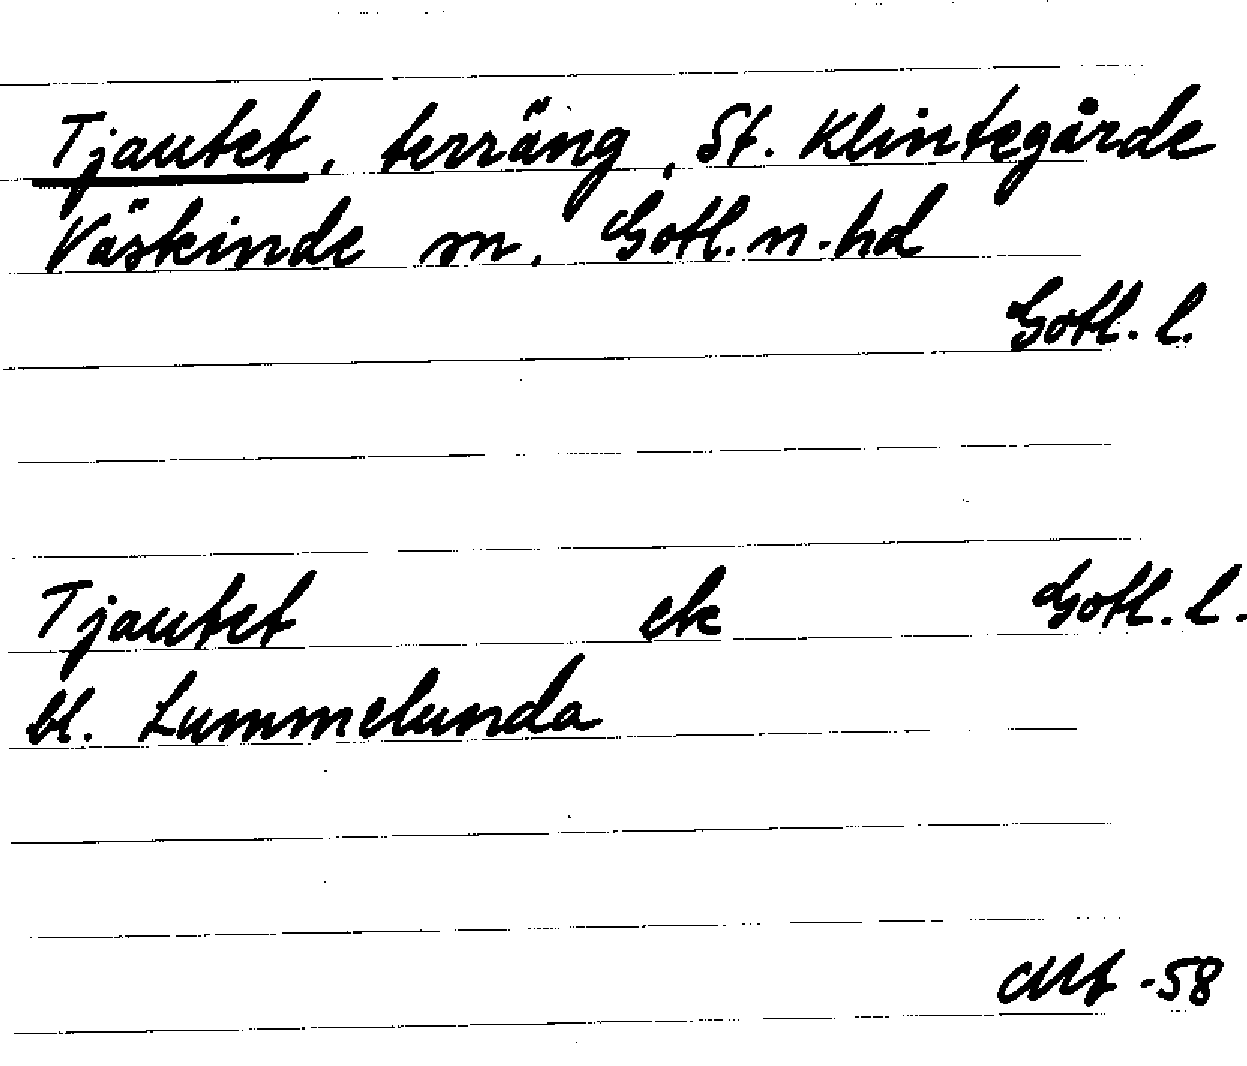 Tjautet, terräng, St. Klintegårde
Väskinde sn, Gotl. n. hd
Gotl. l.
Tjautet ek Gotl. l.
bl. Lummelunda
-58